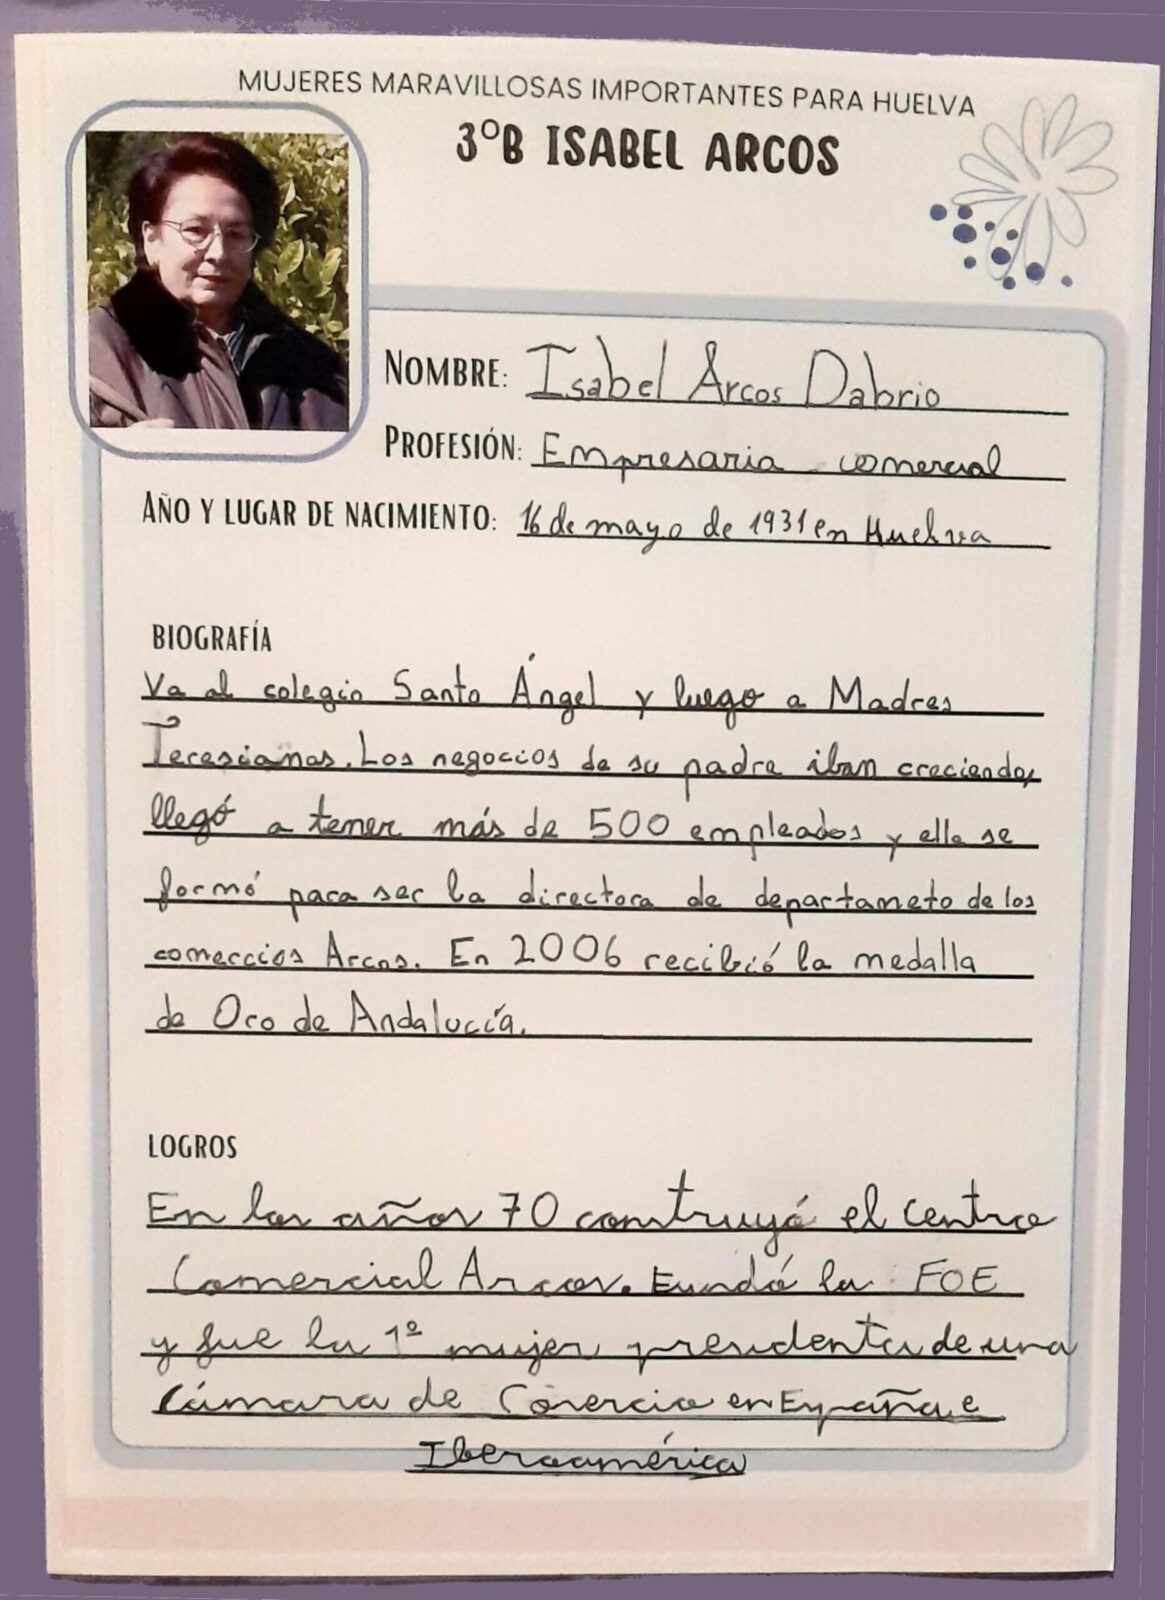 MUJERES MARAVILLOSAS IMPORTANTES PARA HUELVA
3ºB ISABEL ARCOS
NOMBRE: Isabel Arcos Dabrio
PROFESIÓN: Empresaria comercial
AÑO Y LUGAR DE NACIMIENTO: 16 de mayo de 1931 en Huelva
BIOGRAFÍA
Va al colegio Santo Ángel y luego a Madres
Teresianas. Los negocios de su padre iban creciendo,
llegó a tener más de 500 empleados y ella se
formó para ser la directora de departameto de los
comercios Arcos. En 2006 recibió la medalla
de Oro de Andalucía.
LOGROS
En los años 70 construyó el centro
Comercial Arcos. Fundó la FOE
y fue la 1º mujer presidenta de una
Cámara de Comercio en España e
Iberoamérica